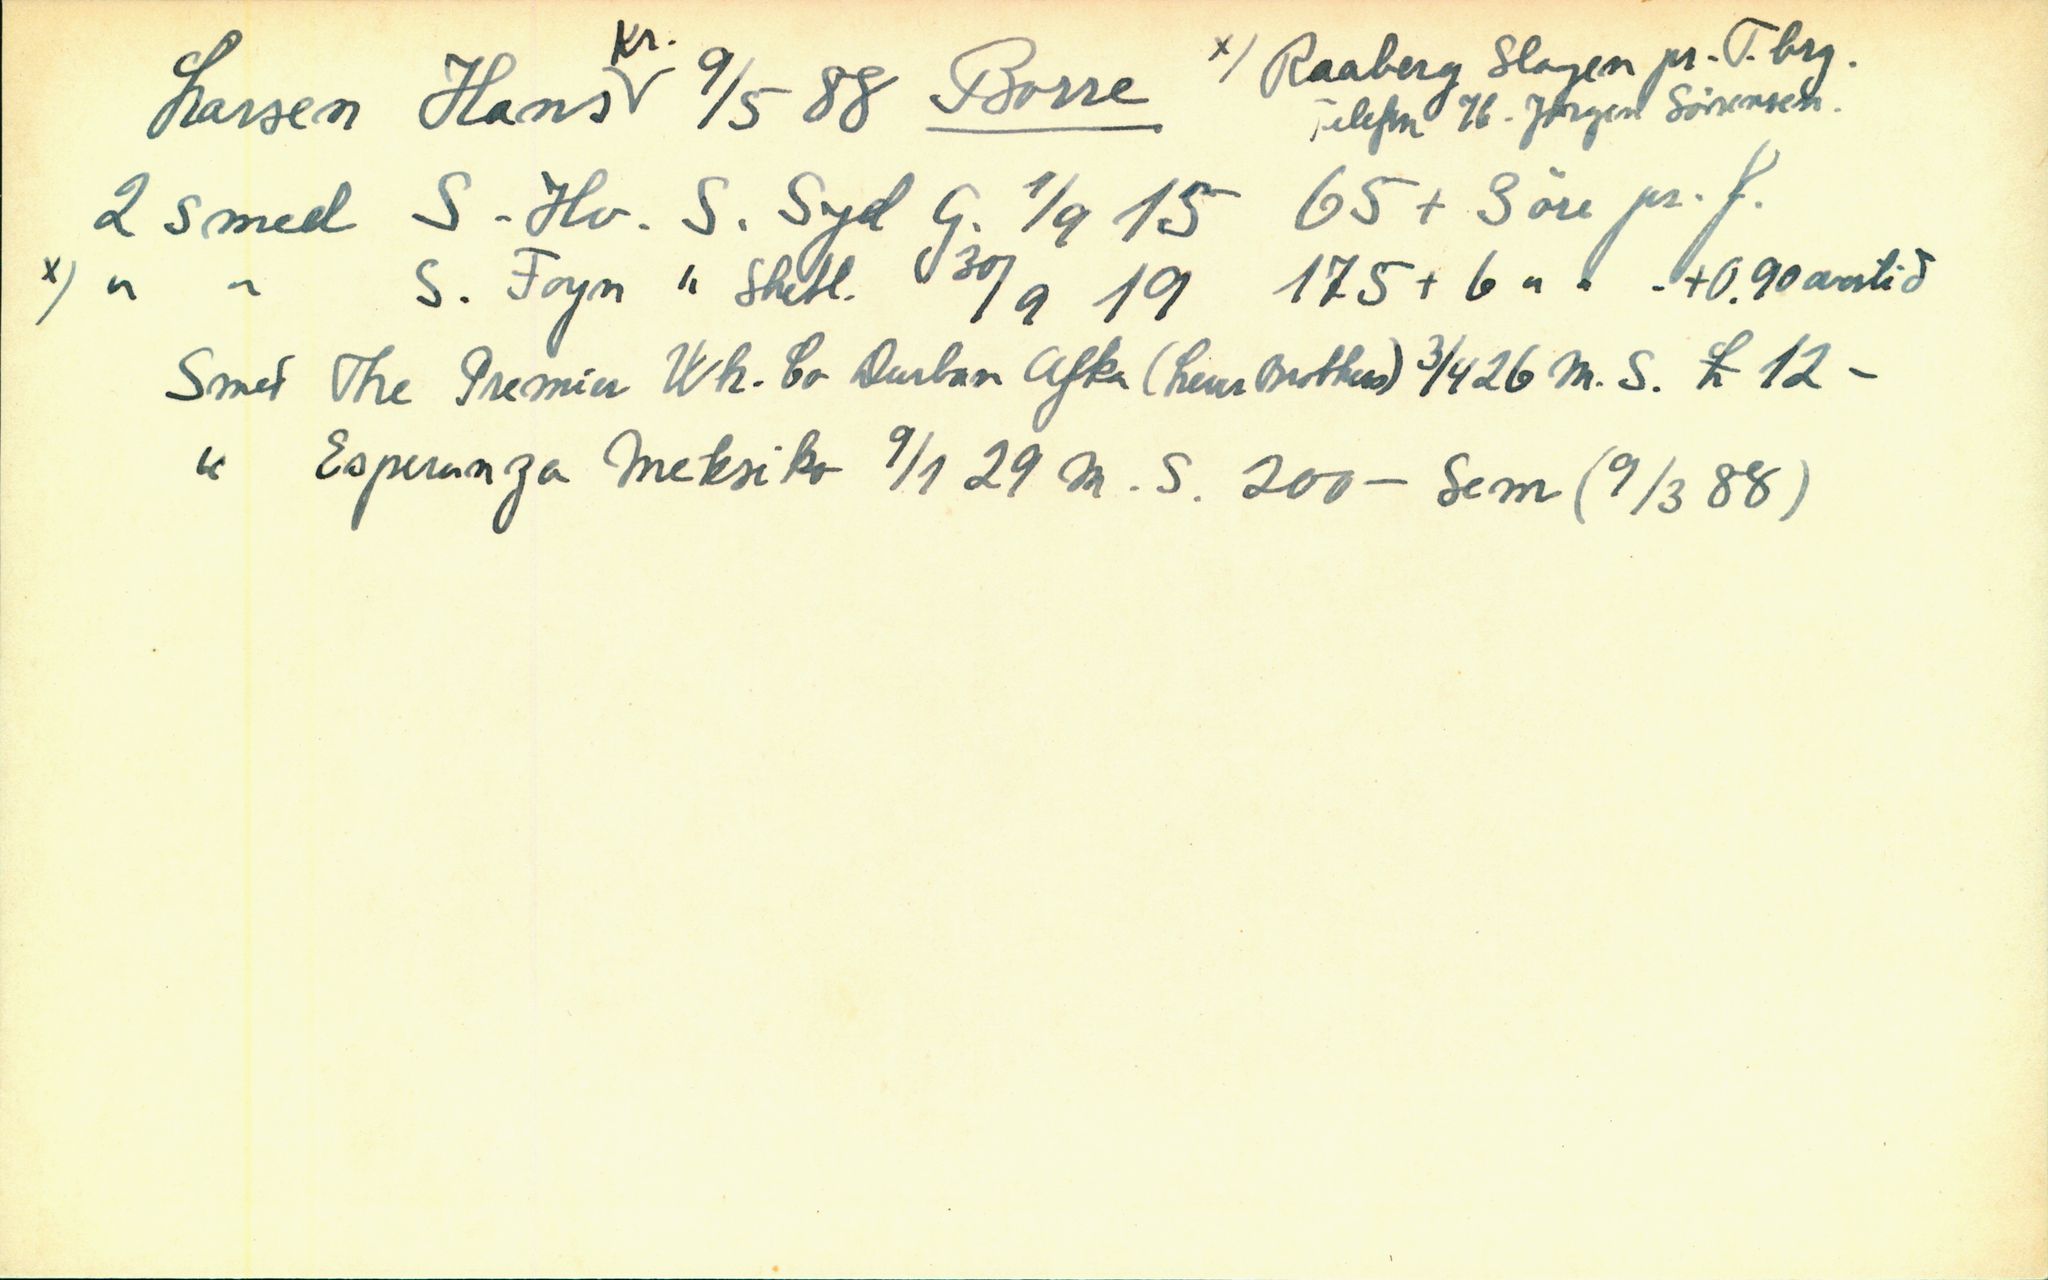 Larsen Hans Kr. 9/5 88 Borre x) Raaberg Slagen pr. T.brg.
Telefon 76 - Jørgen Sörensen.
2 smed S - Hv. S. Syd G. 1/9 15 65 + 3 öre pr. f.
x) " " S. Foyn " Shetl. 30/9 19 175 + 6 " " - +0.90 overtid
Smed The Premier Wh. Co Durban Afka (Lever Brothers) 3/4 26 M. S. £ 12 -
" Esperanza Meksiko 9/1 29 M. S. 200 - Sem (9/3 88)